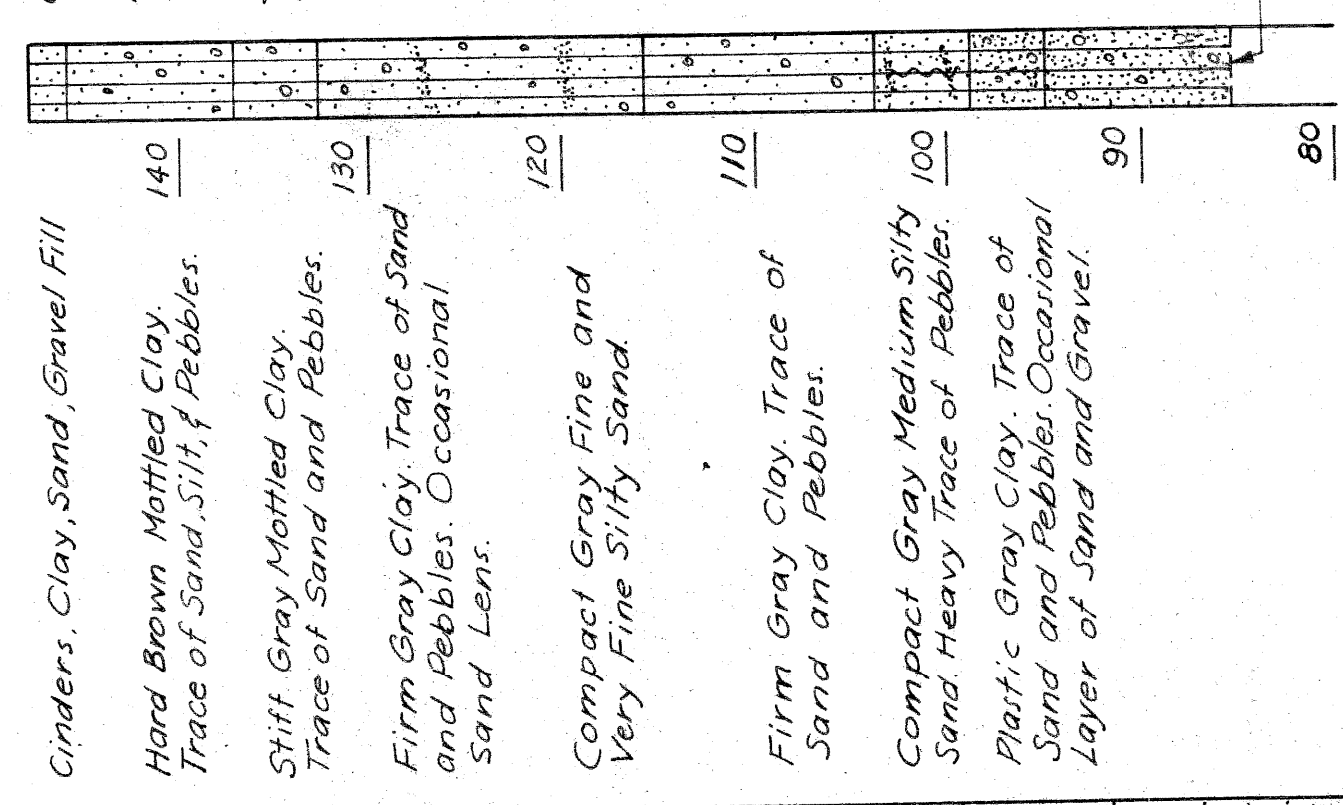 Cinders, Clay, Sand, Gravel Fill
Hard Brown Mottled Clay.
Trace of Sand, Silt, & Pebbles.
140
Stiff Gray Mottled Clay.
Trace of Sand and Pebbles.
130
Firm Gray Clay. Trace of Sand
and Pebbles. Occasional
Sand Lens.
120
Compact Gray Fine and
Very Fine Silty Sand.
110
Firm Gray Clay. Trace of
Sand and Pebbles.
100
Compact Gray Medium Silty
Sand. Heavy Trace of Pebbles.
Plastic Gray Clay. Trace of
Sand and Pebbles. Occasional
Layer of Sand and Gravel.
90
80